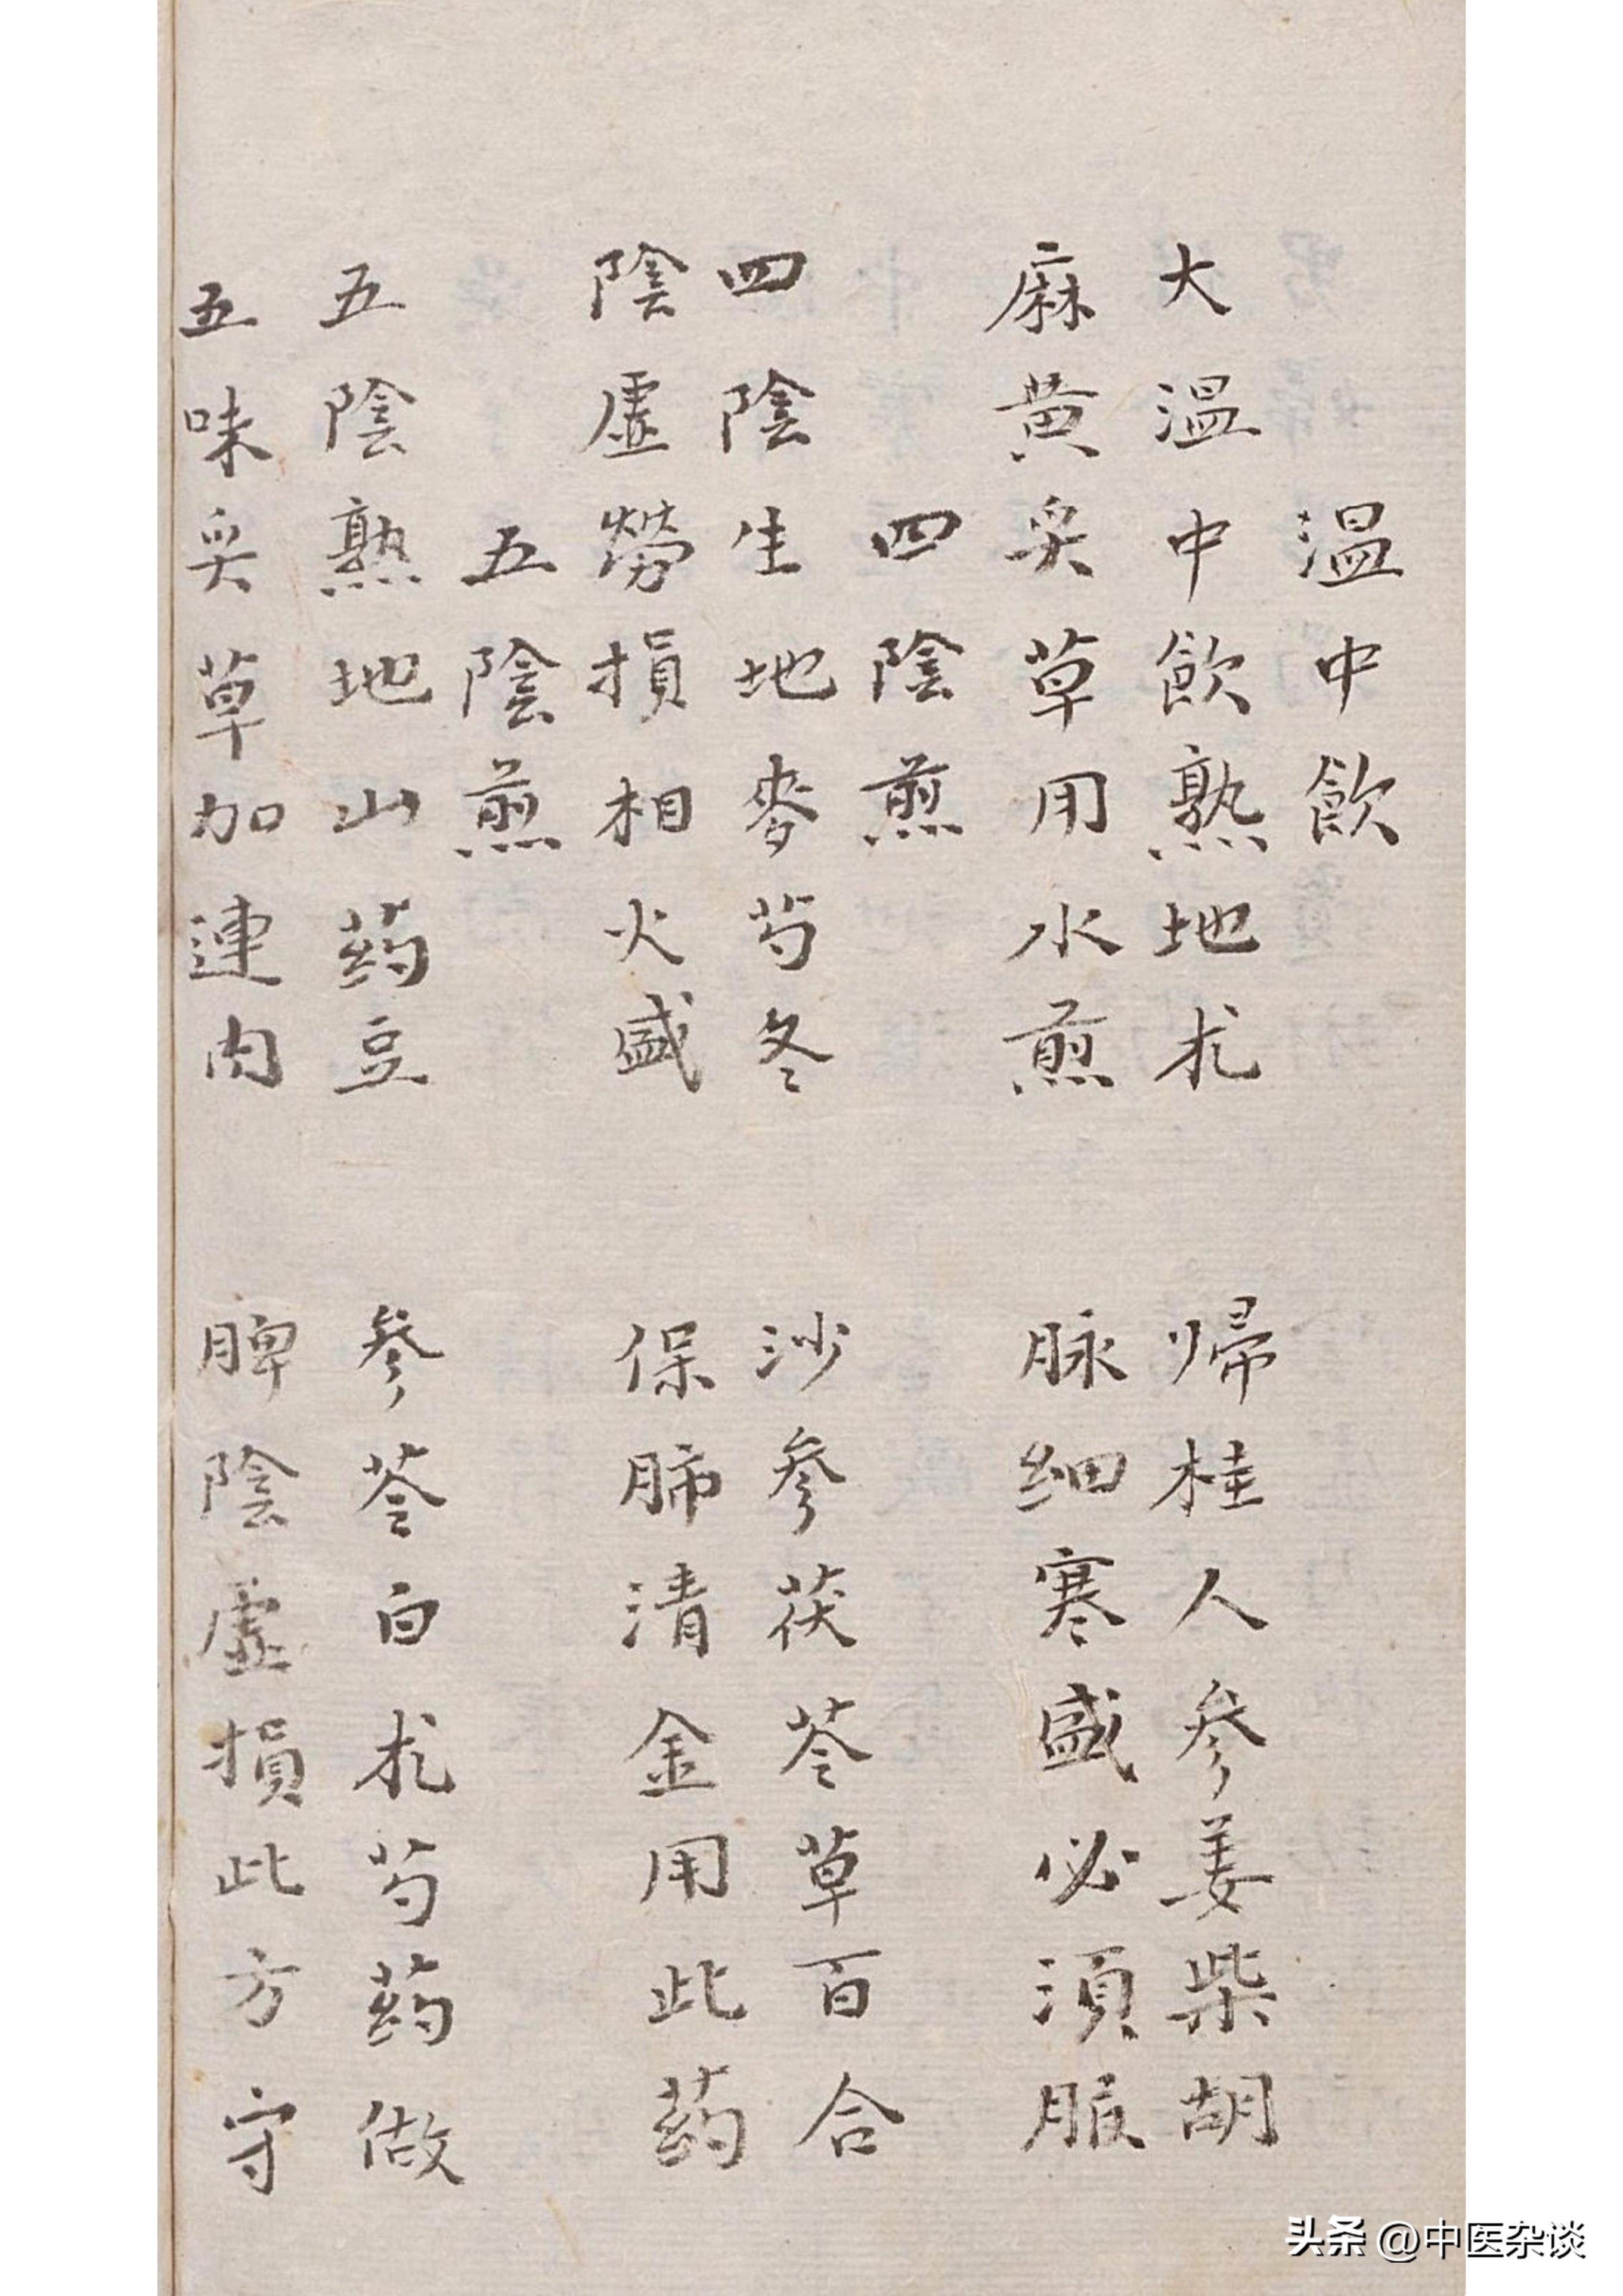 温中飲
大温中飲熟地朮　帰桂人参姜柴胡
麻黄炙草用水煎　脉细寒盛必須服
四陰煎
四陰生地麥芍冬　沙參茯苓草百合
陰虛勞損相火盛　保肺清金用此葯
五陰煎
五陰熟地山葯豆　參苓白朮芍葯做
五味炙草加連肉　脾陰虛損此方守
头条 @中医杂谈